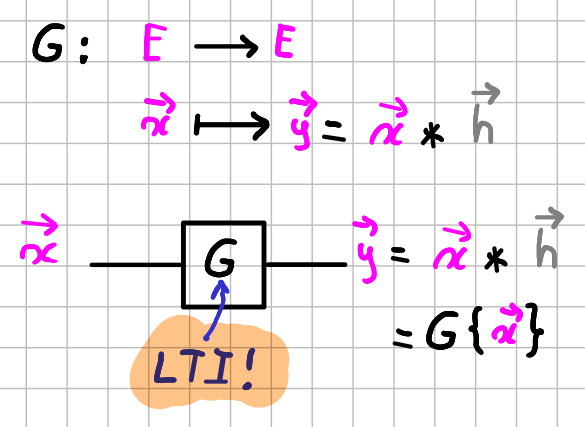 G: E ⟶ E
x⃗ ⟼ y⃗ = x⃗ * h⃗
x⃗ G y⃗ = x⃗ * h⃗
= G{x⃗}
LTI!